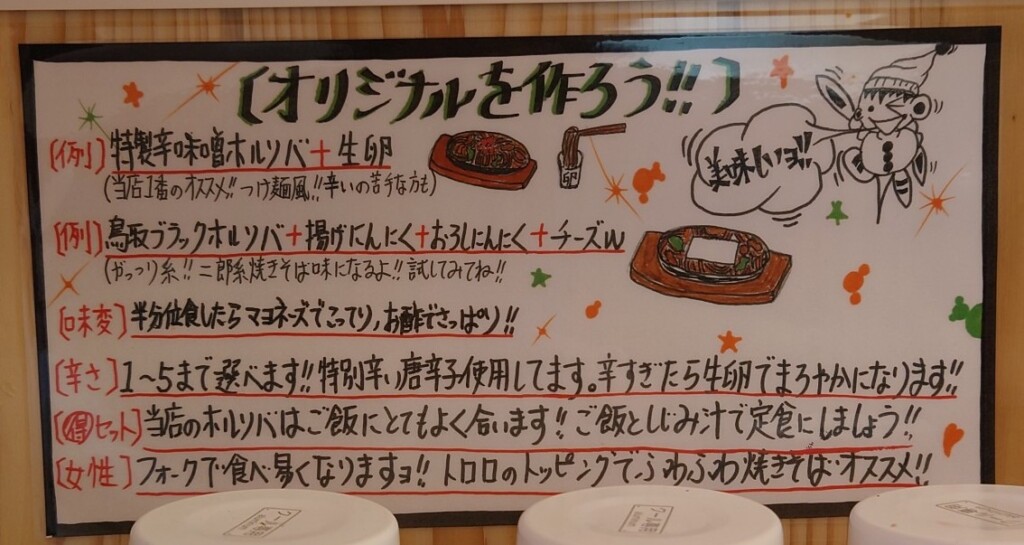 〔オリジナルを作ろう!!〕
〔例〕特製辛味噌ホルソバ+生卵
(当店1番のオススメ!!つけ麺風!!辛いの苦手な方も)
卵
美味しいヨ!!
〔例〕鳥取ブラックホルソバ+揚げにんにく+おろしにんにく+チーズW
(がっつり系!!二郎系焼きそば味になるよ!!試してみてね!!)
〔味変〕半分位食したらマヨネーズでこってり,お酢でさっぱり!!
〔辛さ〕1〜5まで選べます!!特別辛い唐辛子使用してます。辛すぎたら生卵でまろやかになります!!
〔得セット〕当店のホルソバはご飯にとてもよく合います!!ご飯としじみ汁で定食にしましょう!!
〔女性〕フォークで食べ易くなりますヨ!!トロロのトッピングでふわふわ焼きそば オススメ!!